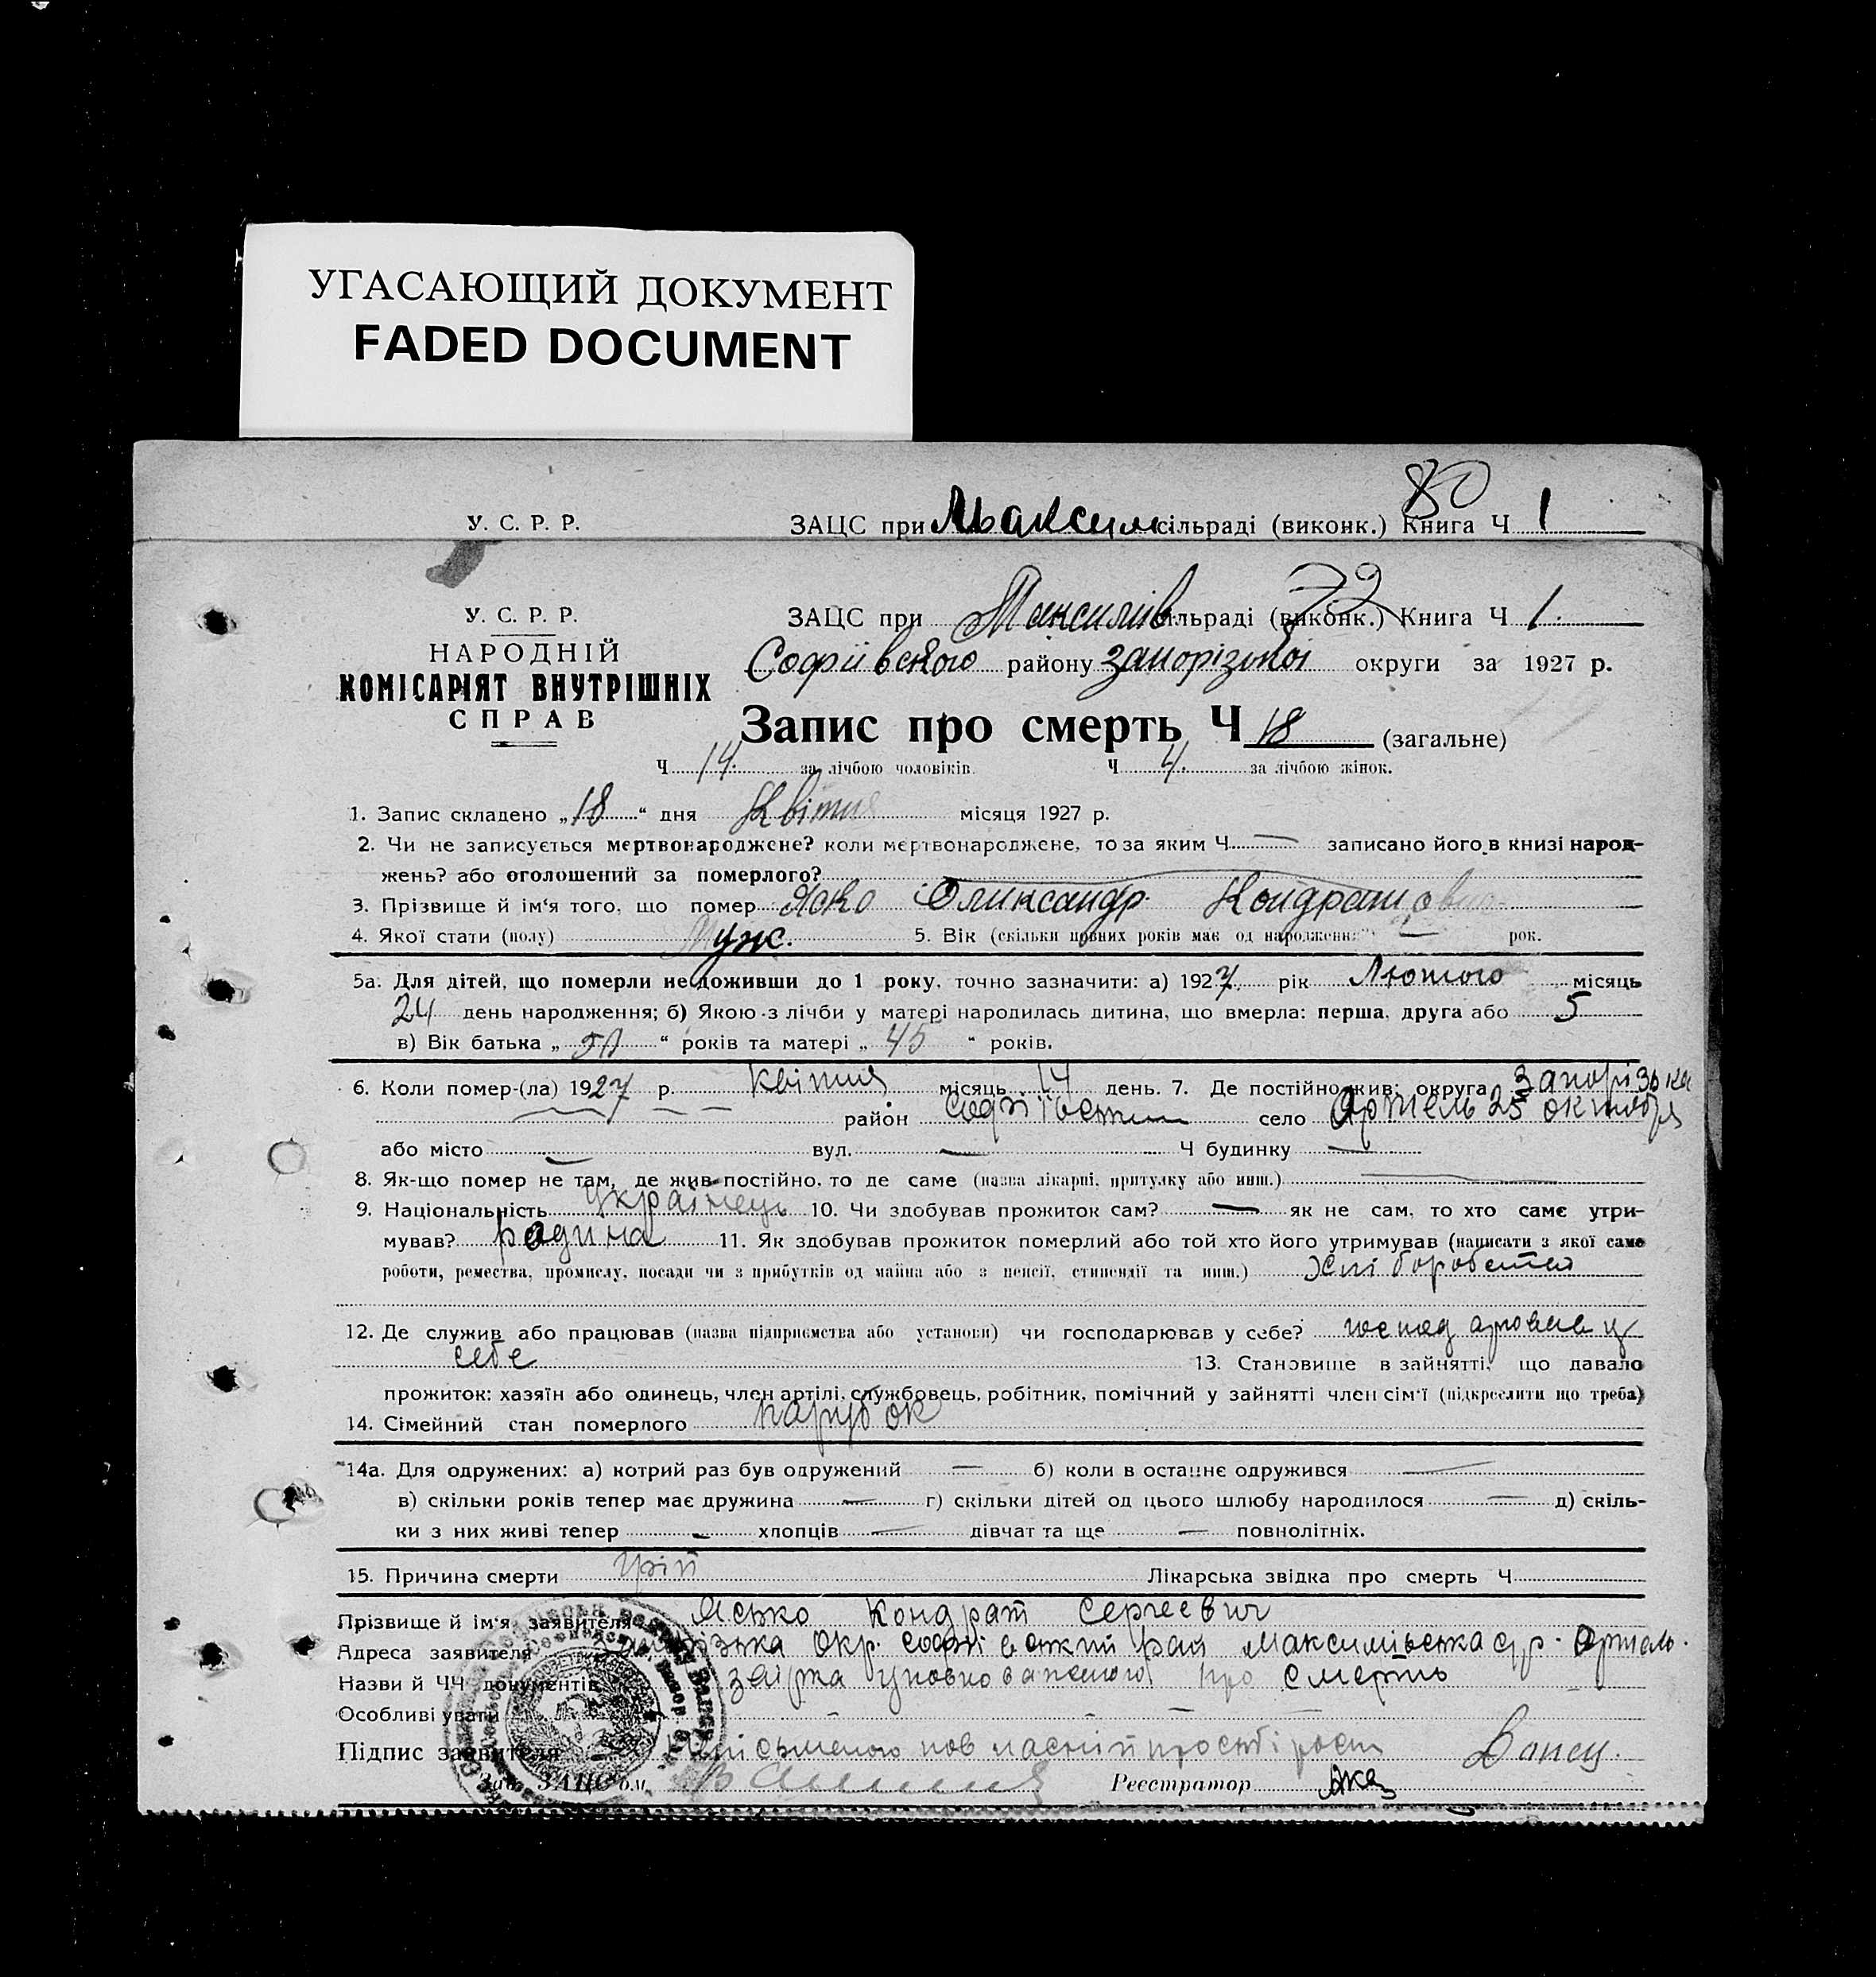 УГАСАЮЩИЙ ДОКУМЕНТ
FADED DOCUMENT
80
У. С. Р. Р. ЗАЦС при Максим сільраді (виконк.) Книга Ч 1
79
У. С. Р. Р. ЗАЦС при Максимів сільраді (виконк.) Книга Ч 1.
НАРОДНІЙ Софіївского району запорізької округи за 1927 р.
КОМІСАРІЯТ ВНУТРІШНІХ
СПРАВ
Запис про смерть Ч 18 (загальне)
Ч 14. за лічбою чоловіків. Ч 4. за лічбою жінок.
1. Запис складено „18“ дня Квітня місяця 1927 р.
2. Чи не записується мертвонароджене? коли мертвонароджене, то за яким Ч — записано його в книзі народ-
жень? або оголошений за померлого?
3. Прізвище й ім'я того, що помер Ясько Олександр Кондратович
4. Якої стати (полу) Муж. 5. Вік (скільки повних років має од народження) — рок.
5а. Для дітей, що померли не доживши до 1 року, точно зазначити: а) 1927 рік Лютого місяць
24 день народження; б) Якою з лічби у матері народилась дитина, що вмерла: перша, друга або 5
в) Вік батька „50“ років та матері „45“ років.
6. Коли помер-(ла) 1927 р. квітня місяць 14 день. 7. Де постійно жив: округа Запорізька
район село Артель 25 октября
або місто — вул. — Ч будинку —
8. Як-що помер не там, де жив постійно, то де саме (назва лікарні, притулку або инш.)
9. Національність українець 10. Чи здобував прожиток сам? — як не сам, то хто саме утри-
мував? родина 11. Як здобував прожиток померлий або той хто його утримував (написати з якої саме
роботи, ремества, промислу, посади чи з прибутків од майна або з пенсії, стипендії та инш.)
12. Де служив або працював (назва підприємства або установи) чи господарював у себе? у
себе 13. Становище в зайнятті, що давало
прожиток: хазяїн або одинець, член артілі, службовець, робітник, помічний у зайнятті член сім'ї (підкреслити що треба)
14. Сімейний стан померлого парубок
14а. Для одружених: а) котрий раз був одружений — б) коли в останнє одружився —
в) скільки років тепер має дружина — г) скільки дітей од цього шлюбу народилося — д) скіль-
ки з них живі тепер — хлопців — дівчат та ще — повнолітніх.
15. Причина смерти гріп Лікарська звідка про смерть Ч
Прізвище й ім'я заявителя Ясько Кондрат Сергеевич
Адреса заявителя окр. рай Максимівська с/р. Артель.
Назви й ЧЧ документів про смерть
Особливі уваги
Підпис заявителя
Зав. ЗАЦС'ом Реєстратор